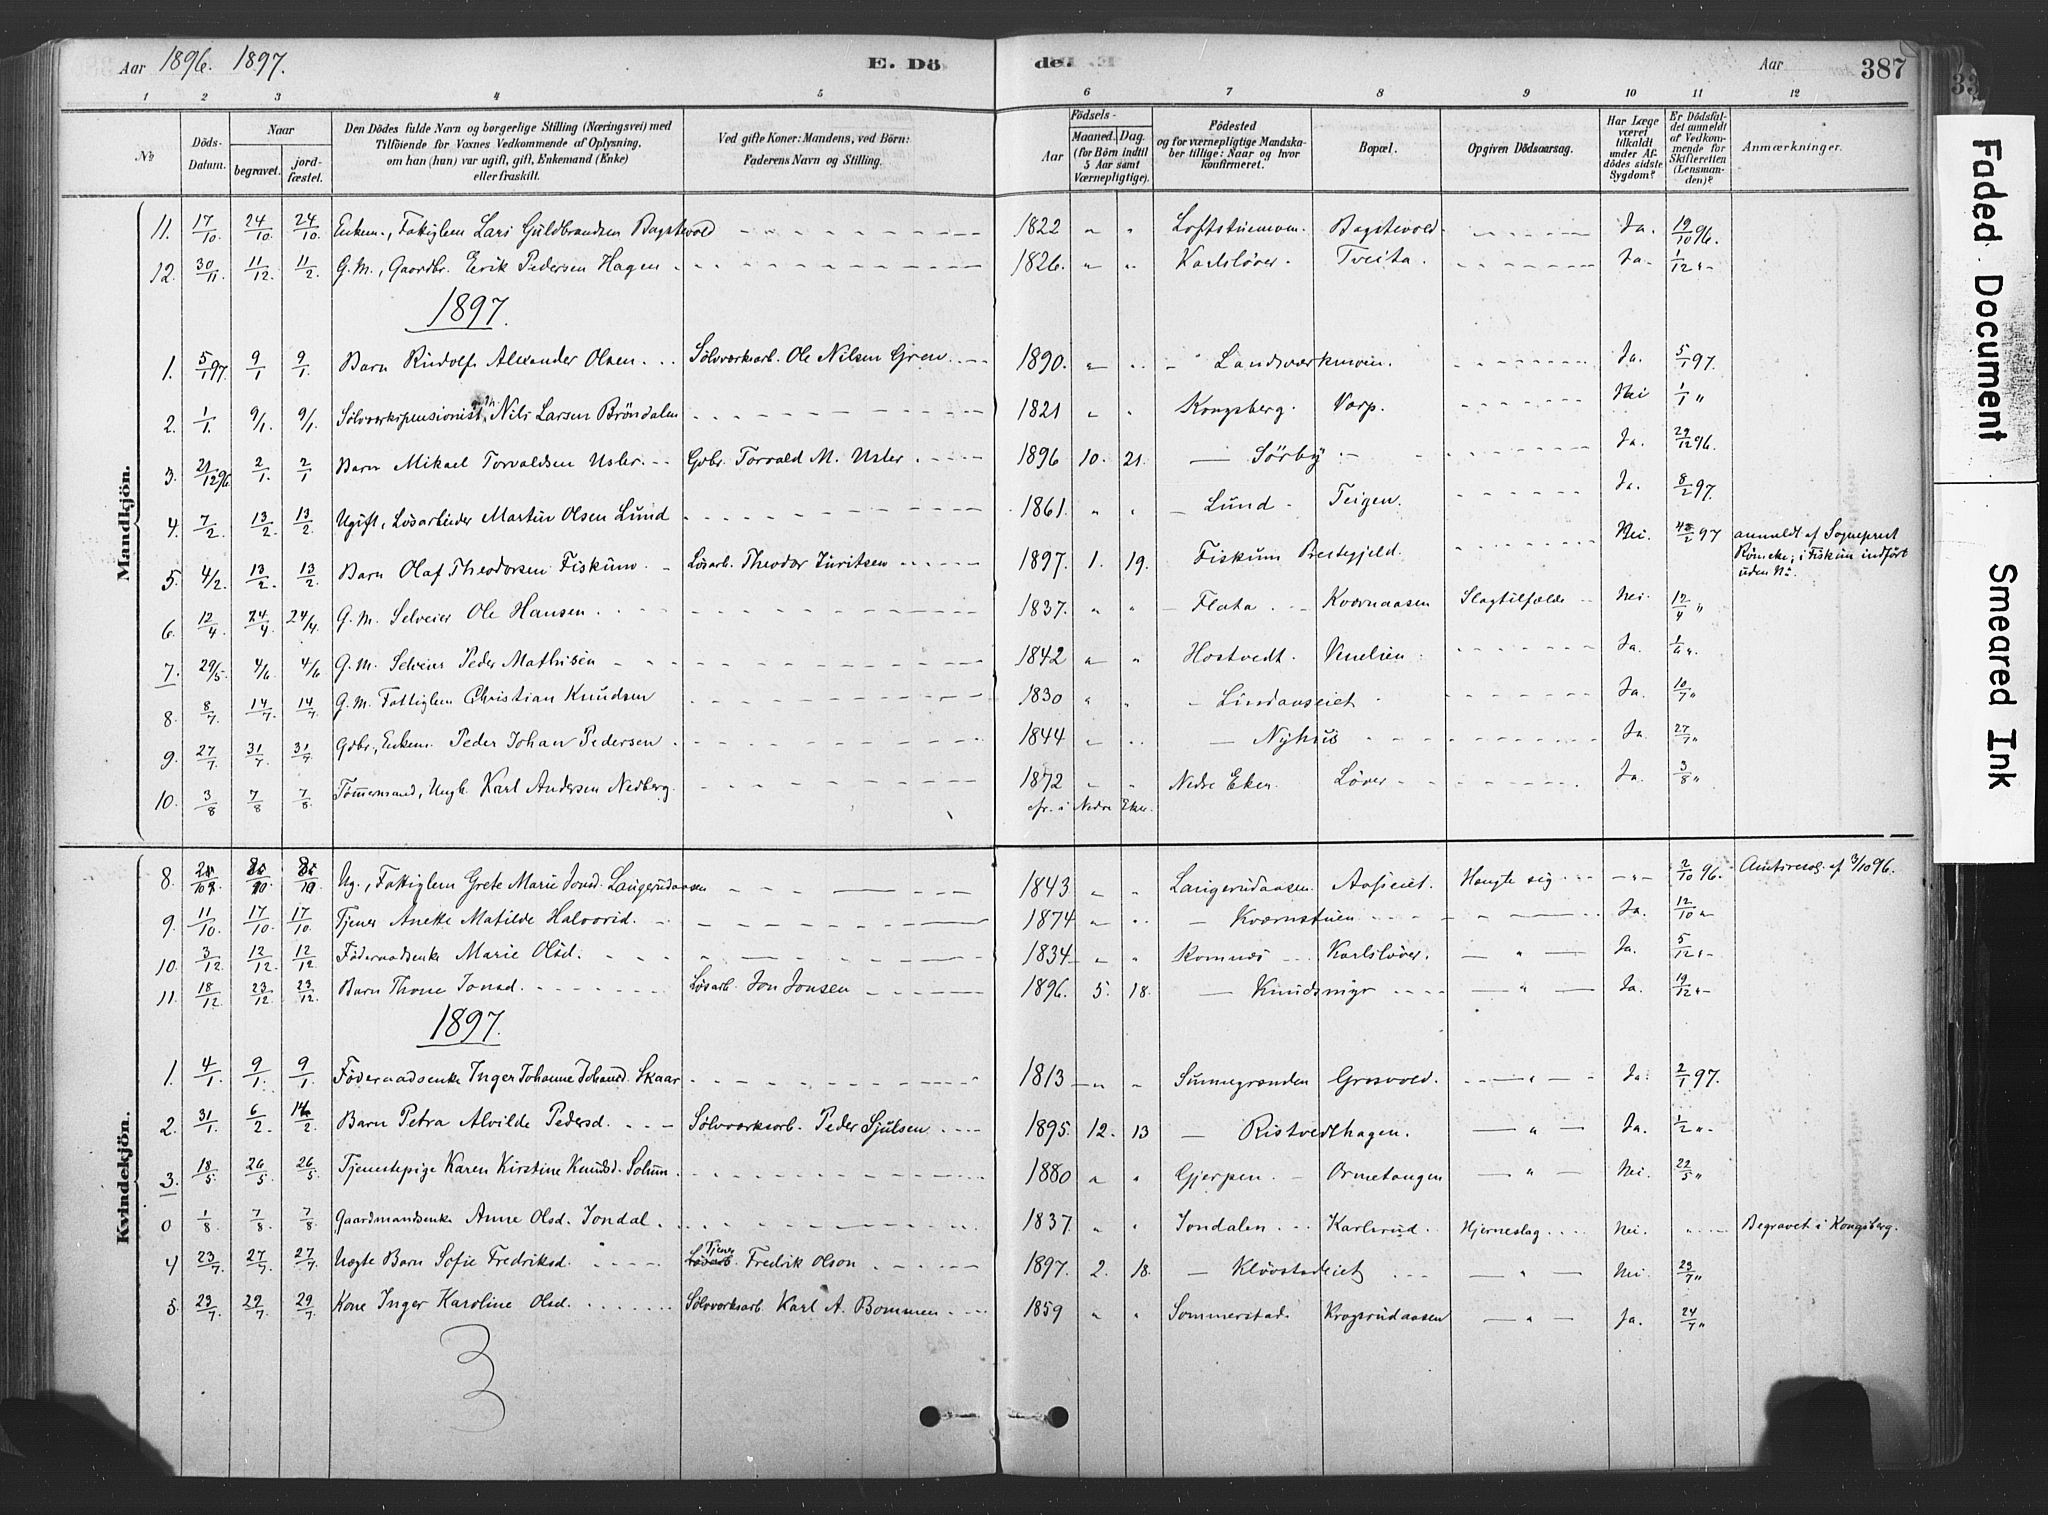 Aar 1896. 1897. E. Dö de. Aar 387
1 2 3 4 5 6 7 8 9 10 11 12
№ Döds-Datum. Naar begravet. jord-fæstet. Den Dödes fulde Navn og borgerlige Stilling (Næringsvei) med Tilföiende for Voxnes Vedkommende af Oplysning, om han (hun) var ugift, gift, Enkemand (Enke) eller fraskilt. Ved gifte Koner: Mandens, ved Börn: Faderens Navn og Stilling. Aar Födsels- Maaned. Dag. (for Börn indtil 5 Aar samt Værnepligtige). Födested og for værnepligtige Mandskaber tillige: Naar og hvor konfirmeret. Bopæl. Opgiven Dödsaarsag. Har Læge været tilkaldt under Afdödes sidste Sygdom? Er Dödsfaldet anmeldt af Vedkommende for Skifteretten (Lensmanden)? Anmærkninger.
Mandkjön.
11. 17/10 24/10 24/10 Enkem., Fattiglem Lars Guldbrandsen Bagstevold 1822 " " Loftstuemoen. Bagstevold Ja. 19/10 96.
12. 30/11 11/12 11/2 G. M., Gaardbr. Erik Pedersen Hagen 1826. " " Karlslöver. Tveita. Ja. 1/12 "
1897.
1. 5/1 97. 9/1 9/1. Barn Rudolf Alexander Olsen. Sölvverksarb. Ole Nilsen Gren 1890. " " Landsverkmoen. Ja. 5/1 97.
2. 1/1. 9/1. 9/1. Sölvverkspensionist, Nils Larsen Bröndalen 1821 " " Kongsberg. Vorp. Nei 1/1 "
3. 21/12 96. 2/1 2/1 Barn Mikael Torvaldsen Usler. Gdbr. Torvald M. Usler 1896 10. 21. — Sörby Ja. 29/12 96.
4. 7/2. 13/2. 13/2 Ugift, Lösarbeider Martin Olsen Lund 1861. " " Lund. Teigen. Ja. 8/2 97.
5. 4/2. 13/2 13/2 Barn Olaf Theodorsen Fiskum Lösarb. Theodor Juritsen 1897. 1. 19. Fiskum Prestegjeld. Nei. 97 anmeldt af Sogneprest
Röncke; i Fiskum indfört
uden №.
6. 12/4 24/4. 24/4 G. M. Selveier Ole Hansen. 1837. " " Flata. Kvernaasen Slagtilfælde Nei. 12/4 "
7. 29/5 4/6 4/6 G. M. Selveier Peder Mathisen 1842 " " Hostvedt. Venelien. Ja. 1/6 "
8. 8/7. 14/7. 14/7 G. M. Fattiglem Christian Knudsen 1830 " " Lindaaseiet Ja. 10/7 "
9. 27/7. 31/7 31/7. Gdbr., Enkem. Peder Johan Pedersen 1844 " " — Nyhus Ja. 27/7 "
10. 3/8 7/8 7/8 Tömmermand, Ungk. Karl Andersen Nedberg. 1872 " " Nedre Eker Löver Ja. 3/8 "
cfr. i Nedre Eker.
Kvindekjön.
8. Ug., Fattiglem Grete Marie Jonsd. Laugerudaasen 1843 " " Laugerudaasen. Aaseiet. Hængte sig — " — 2/10 96. Amtsresol. af 3/10 96.
9. 11/10. 17/10. 17/10 Tjener Anette Matilde Halvorsd. 1874 " " — Kværnstuen Ja. 12/10 "
10. 3/12 12/12. 12/12 Föderaadsenke Marie Olsd. 1834 " " Komnæs Karlslöver. — " — Ja. 5/12 "
11. 18/12 23/12 23/12. Barn Thone Jonsd. Lösarb. Jon Jonsen 1896. 5. 18. — Knudsmyr — " — Ja. 19/12 "
1897.
1. 4/1 9/1. 9/1. Föderaadsenke Inger Johanne Johansd. Skaar 1813 " " Sunnegrænden Grosvold. — " — Ja. 2/1 97.
2. 31/1. 6/2 14/2. Barn Petra Alvilde Pedersd. Sölvverksarb. Peder Sjulsen 1895. 12. 13 — Ristvedthagen. — " — Ja. 1/2 "
3. 18/5 26/5. 26/5 Tjenestepige Karen Kirstine Knudsd. Solum. 1880 " " Gjerpen. Ormetangen — " — Nei. 22/5 "
0 1/8 7/8. 7/8 Gaardmandsenke Anne Olsd. Jondal. 1837. " " Jondalen Karlsrud. Hjerneslag Nei. " Begravet i Kongsberg.
4 23/7. 27/7 27/7 Uægte Barn Sofie Fredriksd. Lösarb. Tjener Fredrik Olson 1897. 2. 18. — Klövstadeiet — " — Nei. 23/7 "
5. 23/7. 29/7 29/7. Kone Inger Karoline Olsd. Sölvverksarb. Karl A. Bommen 1859 " " Sommerstad. Krogsrudaasen — " — Ja. 24/7 "
3
Faded Document
Smeared Ink